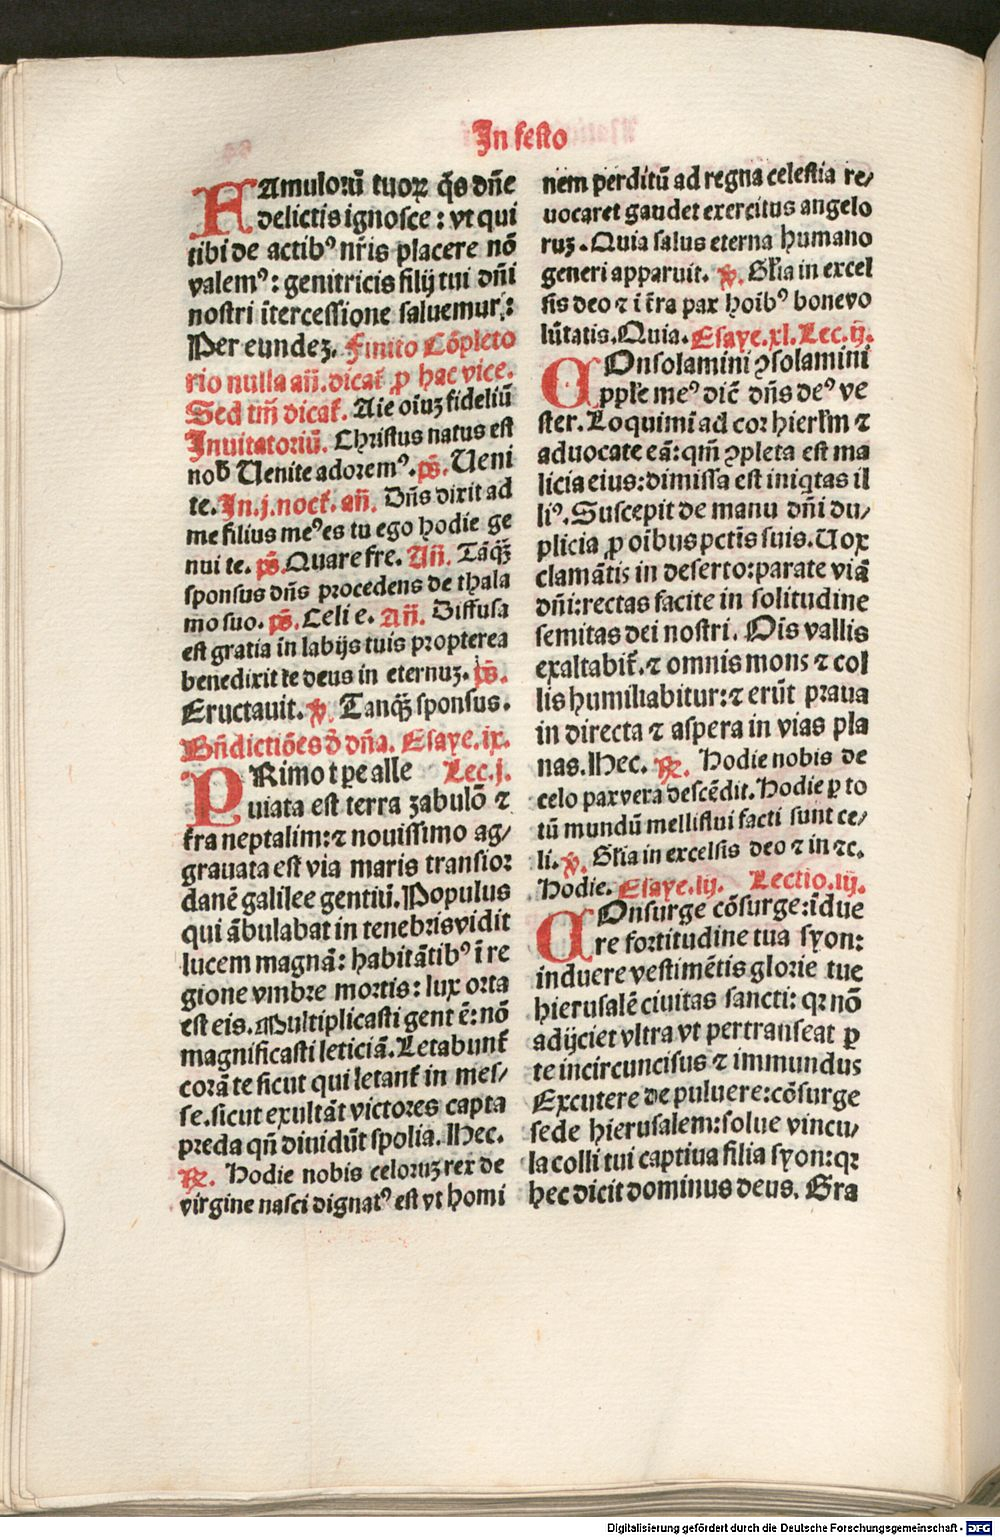 In festo
FAmuloꝝ tuoꝝ q̃s dñe
delictis ignosce : vt qui
tibi de actibꝰ nr̃is placere nõ
valemꝰ : genitricis filij tui dñi
nostri ĩtercessione saluemur :
Per eundeꝫ. Finito Cõpleto
rio nulla añ. dicat̃ ꝓ hac vice.
Sed tm̃ dicat̃. Aie oiuꝫ fideliũ
Inuitatoriũ. Christus natus est
nob̃ Uenite adoremꝰ. ps̃. Ueni
te. In .j. noct̃. añ. Dñs dixit ad
me filius meꝰ es tu ego hodie ge
nui te. ps̃. Quare fre. Añ. Tãqꝫ̃
sponsus dñs procedens de thala
mo suo. ps̃. Celi e. Añ. Diffusa
est gratia in labijs tuis propterea
benedixit te deus in eternuꝫ. ps̃.
Eructauit. ℣. Tanqꝫ̃ sponsus.
Bñdictiões d̃ dña. Esaye. ix.
PRimo tꝑe alle Lec. j.
uiata est terra zabulõ ⁊
t̃ra neptalim: ⁊ nouissimo ag/
grauata est via maris transior
danẽ galilee gentiũ. Populus
qui ãbulabat in tenebris vidit
lucem magnã: habitãtibꝰ ĩ re
gione vmbre mortis: lux orta
est eis. Multiplicasti gent ẽ: nõ
magnificasti leticiã. Letabunt̃
corã te sicut qui letant̃ in mes/
se. sicut exultãt victores capta
preda qñ diuidũt spolia. Hec.
℟. Hodie nobis celoruꝫ rex de
virgine nasci dignatꝰ est vt homi
nem perditũ ad regna celestia re/
uocaret gaudet exercitus angelo
ruꝫ. Quia salus eterna humano
generi apparuit. ℣. Gl̃ia in excel
sis deo ⁊ i t̃ra pax hoĩbꝰ bone vo
lũtatis. Quia. Esaye. xl. Lec. ij.
COnsolamini ꝯsolamini
pple meꝰ dic̃ dñs deꝰ ve
ster. Loquimĩ ad cor hierl̃m ⁊
aduocate eã: qm̃ ꝯpleta est ma
licia eius: dimissa est iniqtas il
liꝰ. Suscepit de manu dñi du/
plicia ꝓ oĩbus pctĩs suis. Uox
clamãtis in deserto: parate viã
dñi: rectas facite in solitudine
semitas dei nostri. Ois vallis
exaltabit̃. ⁊ omnis mons ⁊ col
lis humiliabitur: ⁊ erũt praua
in directa ⁊ aspera in vias pla
nas. Hec. ℟. Hodie nobis de
celo pax vera descẽdit. Hodie ꝑ to
tũ mundũ melliflui facti sunt ce/
li. ℣. Gl̃ia in excelsis deo ⁊ in ⁊c.
Hodie. Esaye. lij. Lectio. iij.
COnsurge cõsurge: ĩdue
re fortitudine tua syon:
induere vestimẽtis glorie tue
hierusalẽ ciuitas sancti: qꝛ nõ
adijciet vltra vt pertranseat ꝑ
te incircuncisus ⁊ immundus
Excutere de puluere: cõsurge
sede hierusalem: solue vincu/
la colli tui captiua filia syon: qꝛ
hec dicit dominus deus. Gra
Digitalisierung gefördert durch die Deutsche Forschungsgemeinschaft - DFG